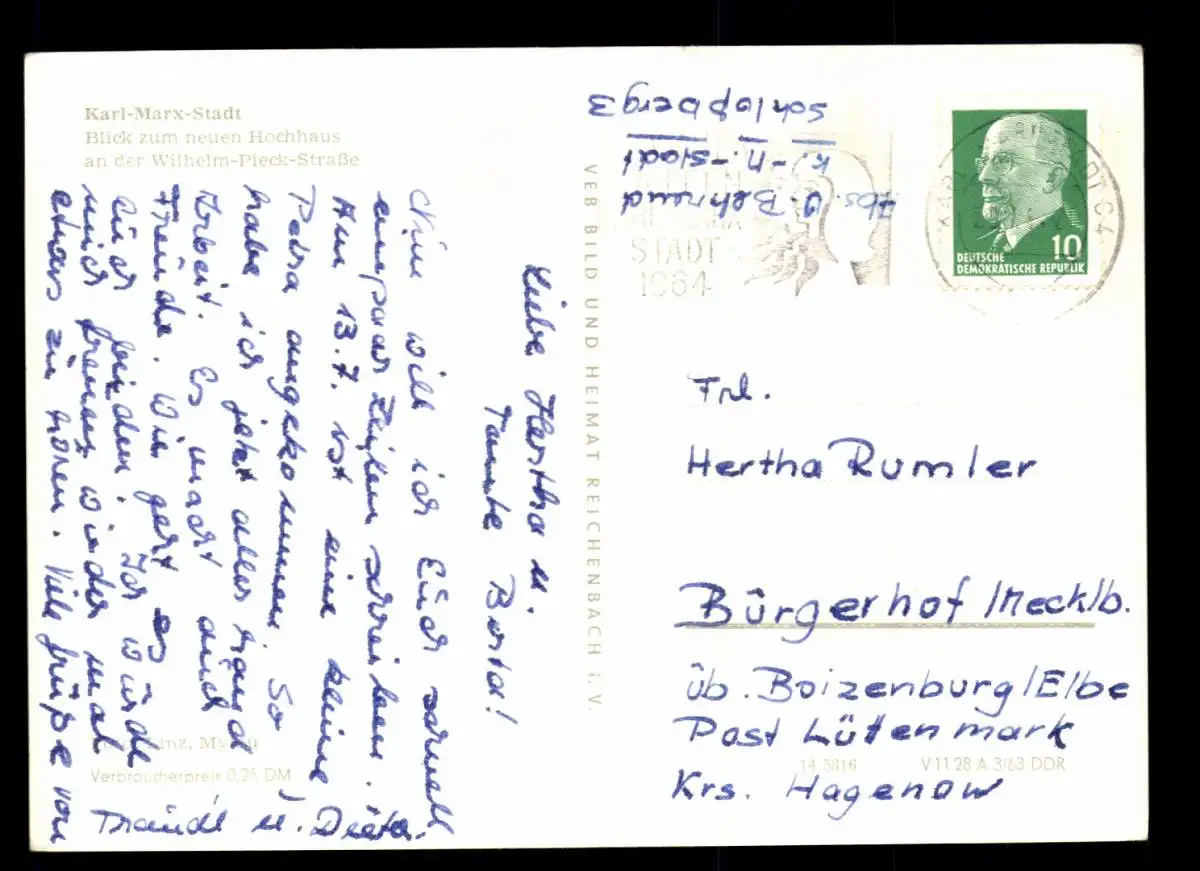 Karl-Marx-Stadt
Blick zum neuen Hochhaus
an der Wilhelm-Pieck-Straße
Liebe Hertha u.
Tante Berta!
Nun will ich Euch schnell
ein paar Zeilen schreiben.
Am 13.7. ist eine kleine
Petra angekommen. So
habe ich jetzt aller Hand
Arbeit. Es macht auch
Freude. Wie geht es
Euch beiden. Ich würde
mich freuen wieder mal
etwas zu hören. Viele Grüße von
Traudl u. Dieter.
Verbraucherpreis 0,25 DM
VEB BILD UND HEIMAT REICHENBACH i. V.
Abs. D. Behrend
K.-M.-Stadt
Schloßberg 3
STADT
1964
10
DEUTSCHE
DEMOKRATISCHE REPUBLIK
Frl.
Hertha Rumler
Bürgerhof /Mecklb.
üb. Boizenburg/Elbe
Post Lüttenmark
Krs. Hagenow
14 5816 V 11 28 A 3/63 DDR